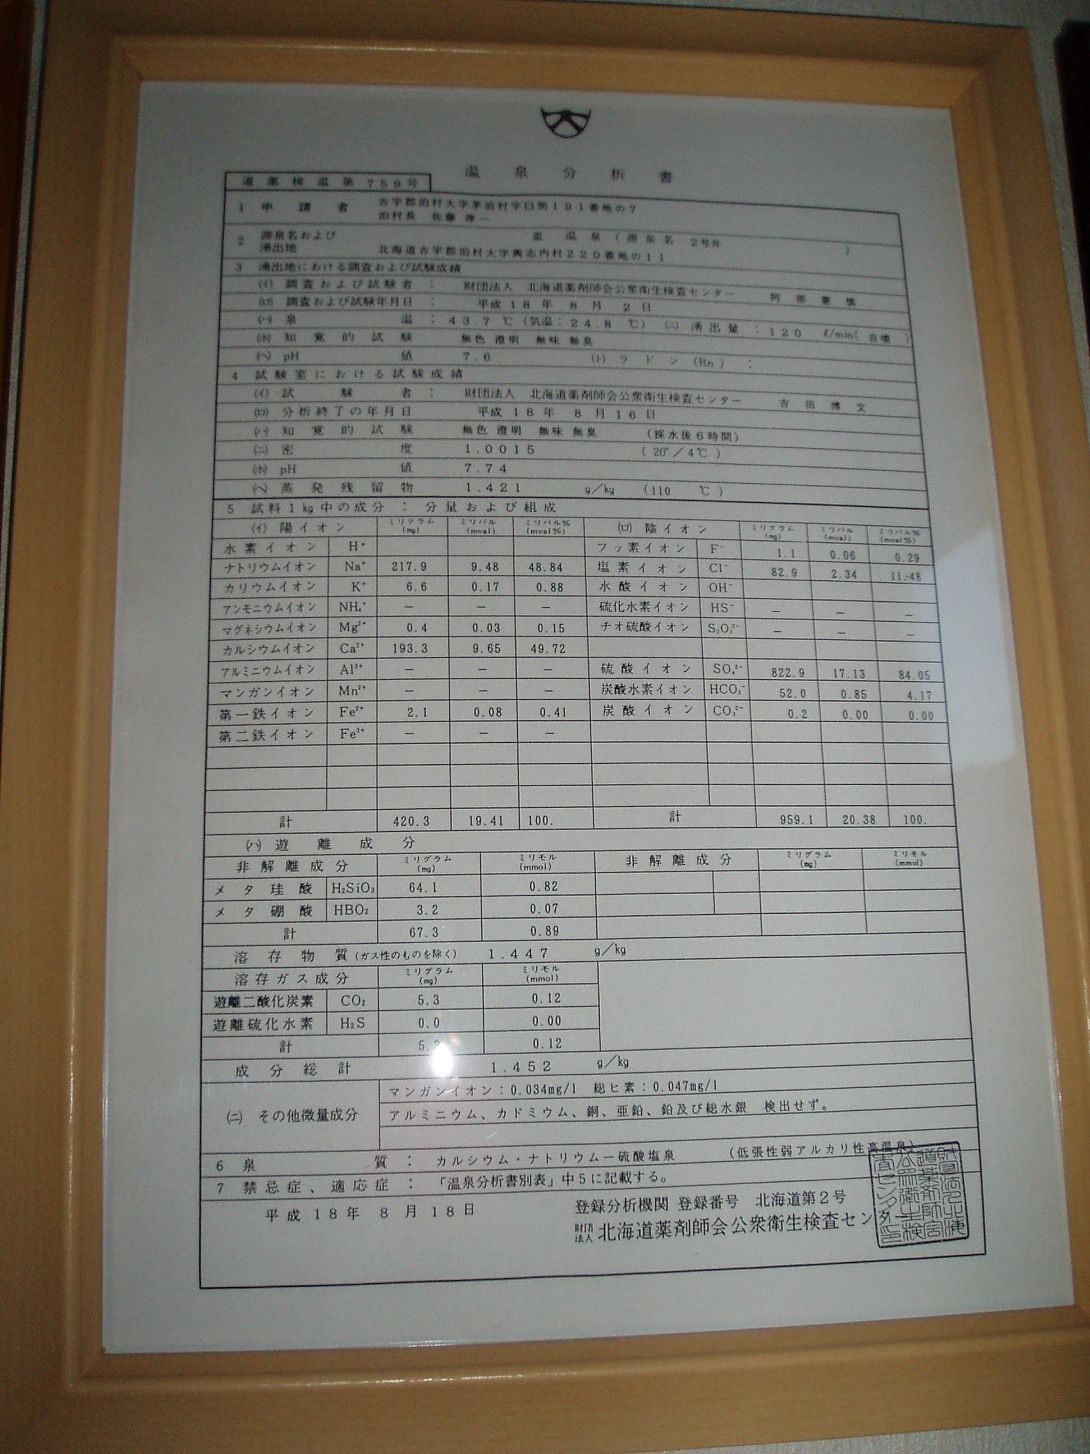 温泉分析書
道薬検温第759号
1 申請者 古宇郡泊村大字茅沼村字臼別191番地の7
泊村長 佐藤
2 源泉名および湧出地 温泉(源泉名 2号井)
北海道古宇郡泊村大字興志内村220番地の11
3 湧出地における調査および試験成績
(イ) 調査および試験者: 財団法人 北海道薬剤師会公衆衛生検査センター 阿部
(ロ) 調査および試験年月日: 平成18年 8月 2日
(ハ) 泉温: 43.7 ℃ (気温: 24.8 ℃) (ニ) 湧出量: 120 ℓ/min(自噴)
(ホ) 知覚的試験 無色 澄明 無味 無臭
(ヘ) pH値 7.6 (ト) ラドン(Rn):
4 試験室における試験成績
(イ) 試験者: 財団法人 北海道薬剤師会公衆衛生検査センター 吉田博文
(ロ) 分析終了の年月日 平成18年 8月16日
(ハ) 知覚的試験 無色 澄明 無味 無臭 (採水後6時間)
(ニ) 密度 1.0015 (20°/4℃)
(ホ) pH値 7.74
(ヘ) 蒸発残留物 1.421 g/kg (110 ℃)
5 試料1kg中の成分: 分量および組成
(イ) 陽イオン ミリグラム(mg) ミリバル(mval) ミリバル%(mval%) (ロ) 陰イオン ミリグラム(mg) ミリバル(mval) ミリバル%(mval%)
水素イオン H⁺ フッ素イオン F⁻ 1.1 0.06 0.29
ナトリウムイオン Na⁺ 217.9 9.48 48.84 塩素イオン Cl⁻ 82.9 2.34 11.48
カリウムイオン K⁺ 6.6 0.17 0.88 水酸イオン OH⁻
アンモニウムイオン NH₄⁺ — — — 硫化水素イオン HS⁻ — — —
マグネシウムイオン Mg²⁺ 0.4 0.03 0.15 チオ硫酸イオン S₂O₃²⁻ — — —
カルシウムイオン Ca²⁺ 193.3 9.65 49.72
アルミニウムイオン Al³⁺ — — — 硫酸イオン SO₄²⁻ 822.9 17.13 84.05
マンガンイオン Mn²⁺ — — — 炭酸水素イオン HCO₃⁻ 52.0 0.85 4.17
第一鉄イオン Fe²⁺ 2.1 0.08 0.41 炭酸イオン CO₃²⁻ 0.2 0.00 0.00
第二鉄イオン Fe³⁺ — — —
計 420.3 19.41 100. 計 959.1 20.38 100.
(ハ) 遊離成分
非解離成分 ミリグラム(mg) ミリモル(mmol) 非解離成分 ミリグラム(mg) ミリモル(mmol)
メタ珪酸 H₂SiO₃ 64.1 0.82
メタ硼酸 HBO₂ 3.2 0.07
計 67.3 0.89
溶存物質(ガス性のものを除く) 1.447 g/kg
溶存ガス成分 ミリグラム(mg) ミリモル(mmol)
遊離二酸化炭素 CO₂ 5.3 0.12
遊離硫化水素 H₂S 0.0 0.00
計 5.3 0.12
成分総計 1.452 g/kg
(ニ) その他微量成分 マンガンイオン:0.034mg/l 総ヒ素:0.047mg/l
アルミニウム、カドミウム、銅、亜鉛、鉛及び総水銀 検出せず。
6 泉質: カルシウム・ナトリウム−硫酸塩泉 (低張性弱アルカリ性高温泉)
7 禁忌症、適応症: 「温泉分析書別表」中5に記載する。
平成18年 8月18日 登録分析機関 登録番号 北海道第2号
財団法人 北海道薬剤師会公衆衛生検査センター